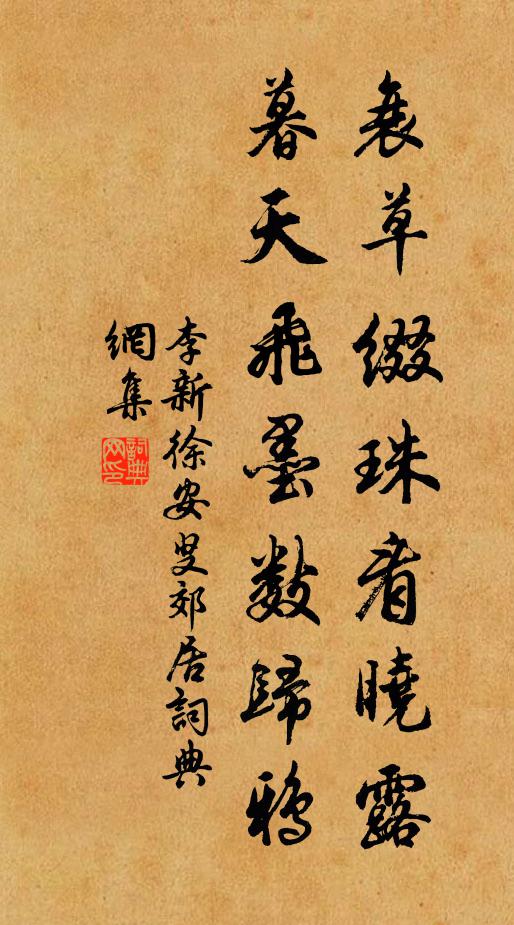 衰草綴珠看曉露
暮天飛墨數歸鴉
李新徐安叟郊居詞典
網集
詞典
網印